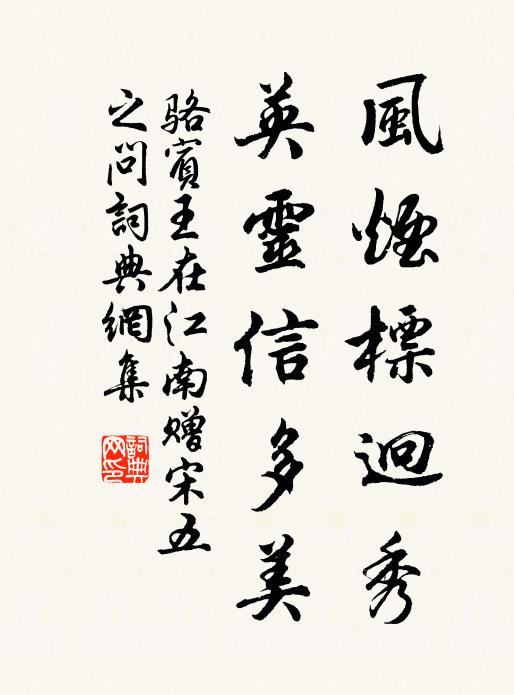 風煙標迥秀
英靈信多美
駱賓王在江南贈宋五
之問詞典網集
詞典
网印